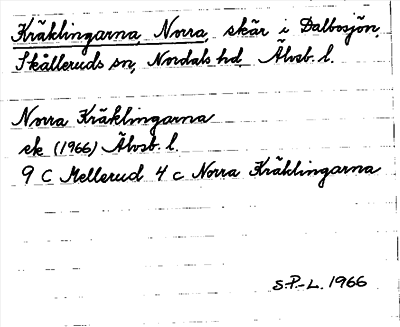 Kräklingarna, Norra, skär i Dalbosjön
Skålleruds sn, Nordals hd, Älvsb. l.
Norra Kräklingarna
ek (1966) Älvsb. l.
9 C Mellerud 4 c Norra Kräklingarna
S.P.-L. 1966